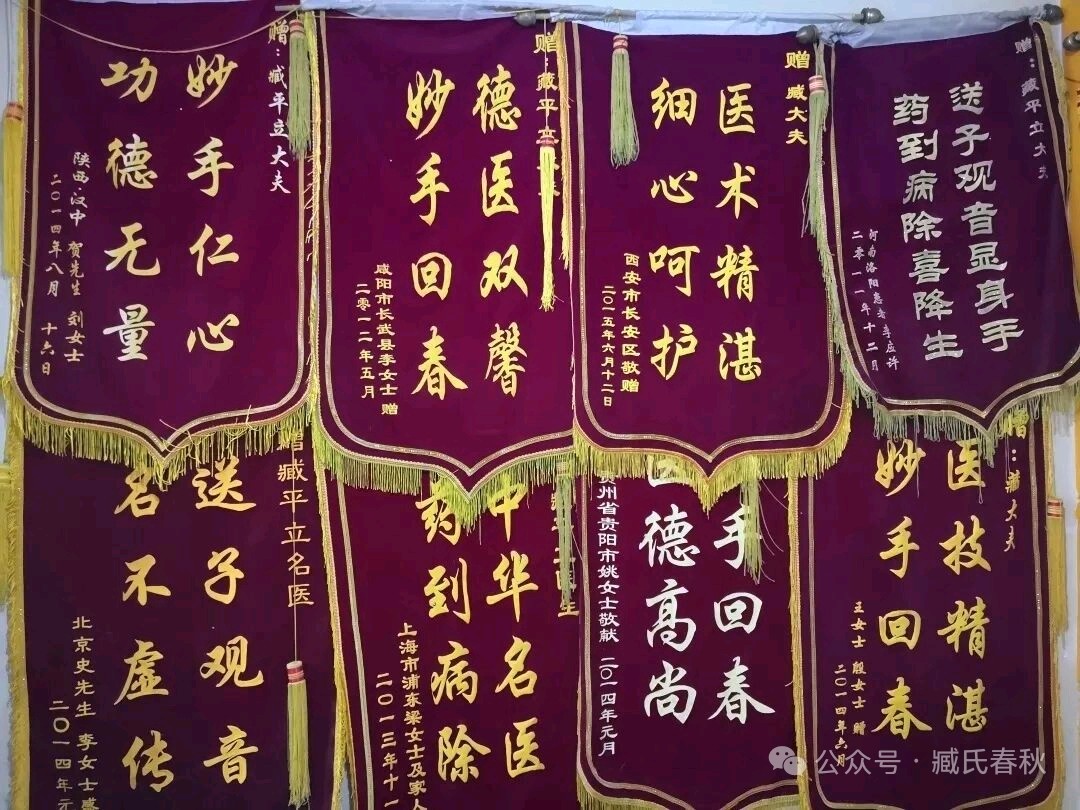 赠：臧平立大夫
妙手仁心
功德无量
陕西·汉中 贺先生 刘女士
二〇一四年八月 十六日
赠：臧平立
德医双馨
妙手回春
咸阳市长武县李女士 赠
二零一二年五月
赠 臧大夫
医术精湛
细心呵护
西安市长安区敬赠
二〇一五年六月十二日
赠：臧平立大夫
送子观音显身手
药到病除喜降生
河南洛阳患者李应许
二零一一年十二月
赠臧平立名医
送子观音
名不虚传
北京史先生 李女士
二〇一四年元
中华名医
药到病除
上海市浦东梁女士及家人
二〇一三年十一
手回春
医德高尚
贵州省贵阳市姚女士敬献 二〇一四年元月
赠：臧大夫
医技精湛
妙手回春
王女士 殷女士 赠
二〇一四年六月
公众号·臧氏春秋